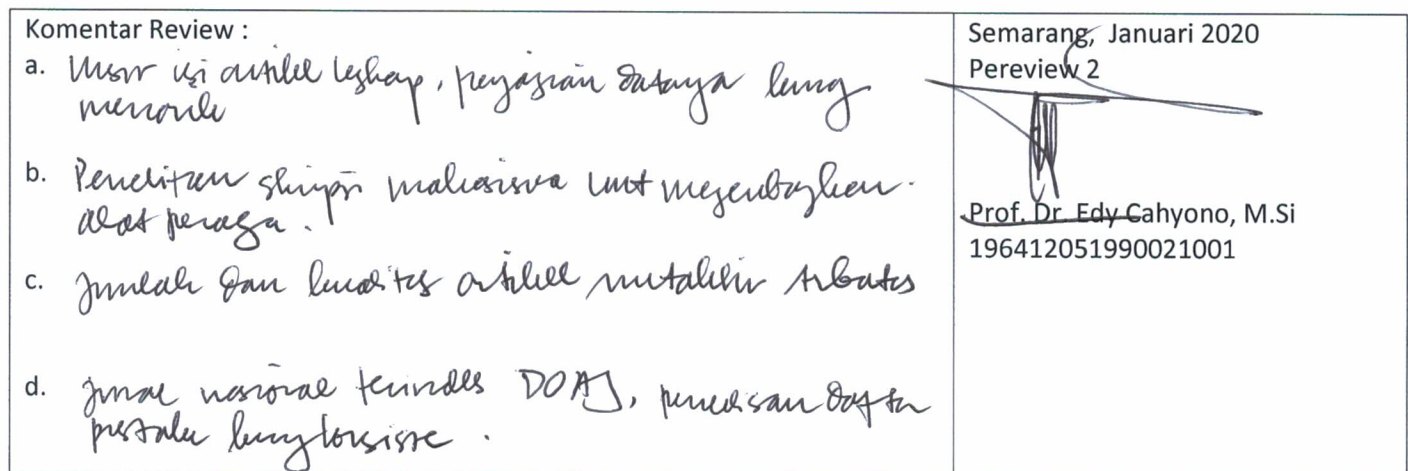 Komentar Review :
a. Unsur isi artikel lengkap, penyajian datanya kurang
menarik
b. Penelitian skripsi mahasiswa unt mengembangkan
alat peraga.
c. Jumlah dan kualitas artikel mutakhir terbatas
d. Jurnal nasional terindeks DOAJ, penulisan daftar
pustaka kurang konsisten.
Semarang, Januari 2020
Pereview 2
Prof. Dr. Edy Cahyono, M.Si
196412051990021001